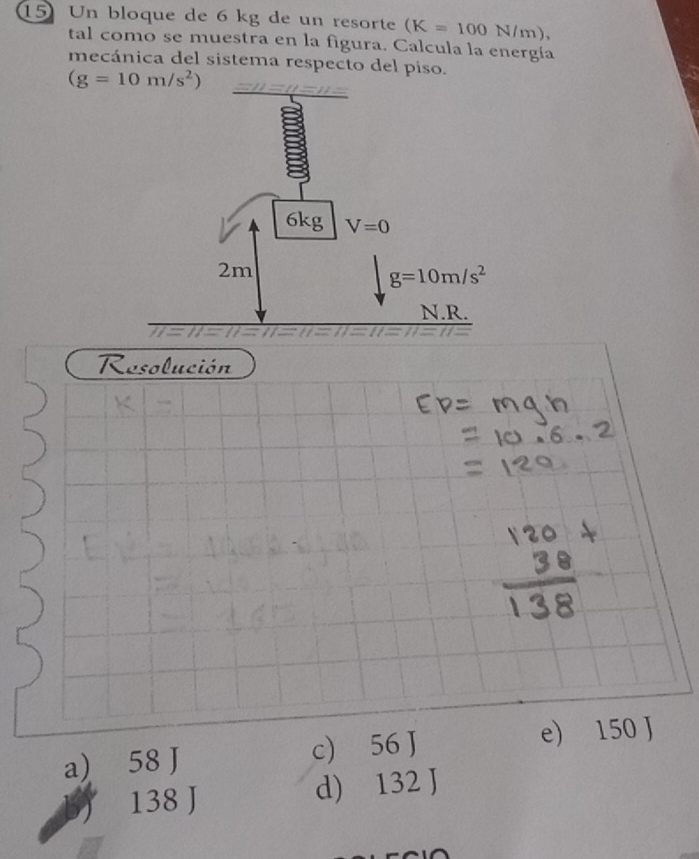 15 Un bloque de 6 kg de un resorte (K = 100 N/m),
tal como se muestra en la figura. Calcula la energía
mecánica del sistema respecto del piso.
(g = 10 m/s²)
6kg V=0
2m
g=10m/s²
N.R.
Resolución
K =
EP= mgh
= 10.6.2
= 120
120 +
38
138
a) 58 J
b) 138 J
c) 56 J
d) 132 J
e) 150 J